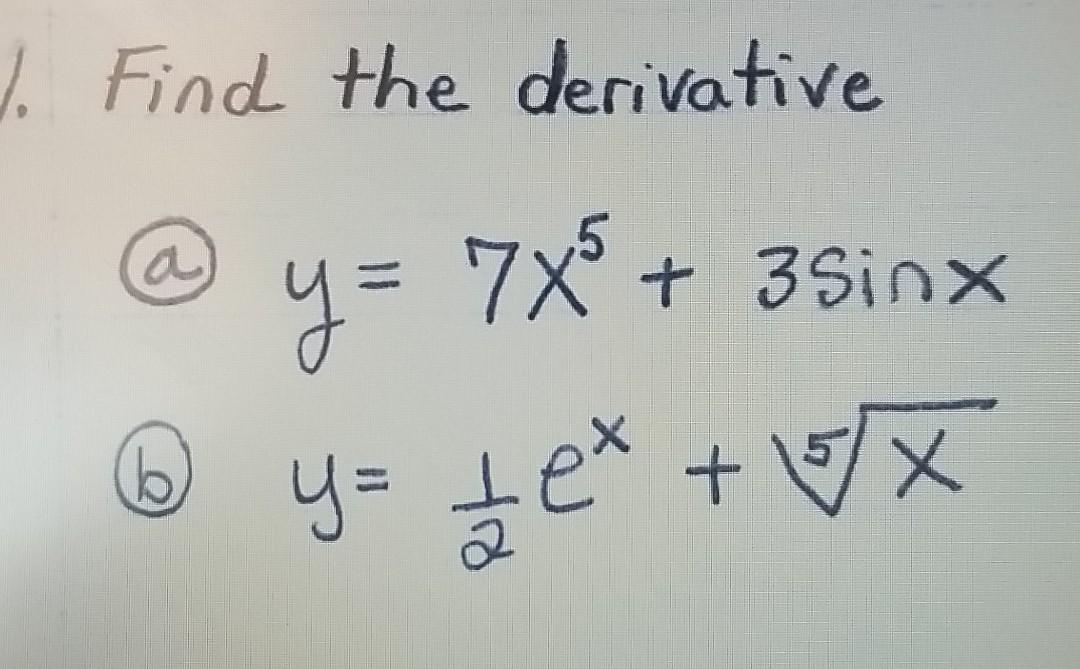 1. Find the derivative
ⓐ y = 7x⁵ + 3sinx
ⓑ y = 1/2 eˣ + ⁵√x